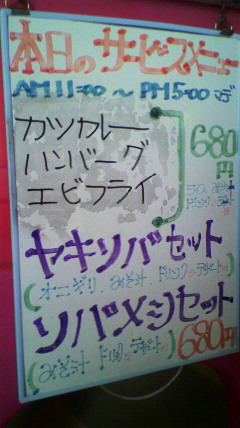 本日のサービスメニュー
AM11:00 ～ PM5:00 まで
カツカレー
ハンバーグ
エビフライ
680円
ライス みそ汁
ドリンク デザート
ヤキソバセット
(オニギリ、みそ汁 ドリンク デザート)
ソバメシセット
(みそ汁 ドリンク デザート) 680円